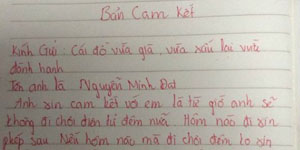 Bản Cam kết
Kính Gửi: Cái đồ vừa già, vừa xấu lại vừa
đành hanh
Tên anh là Nguyễn Minh Đạt
Anh xin cam kết với em là từ giờ anh sẽ
không đi chơi điện tử đêm nữa. Hôm nào đi xin
phép sau. Nếu hôm nào mà đi chơi đêm ko xin